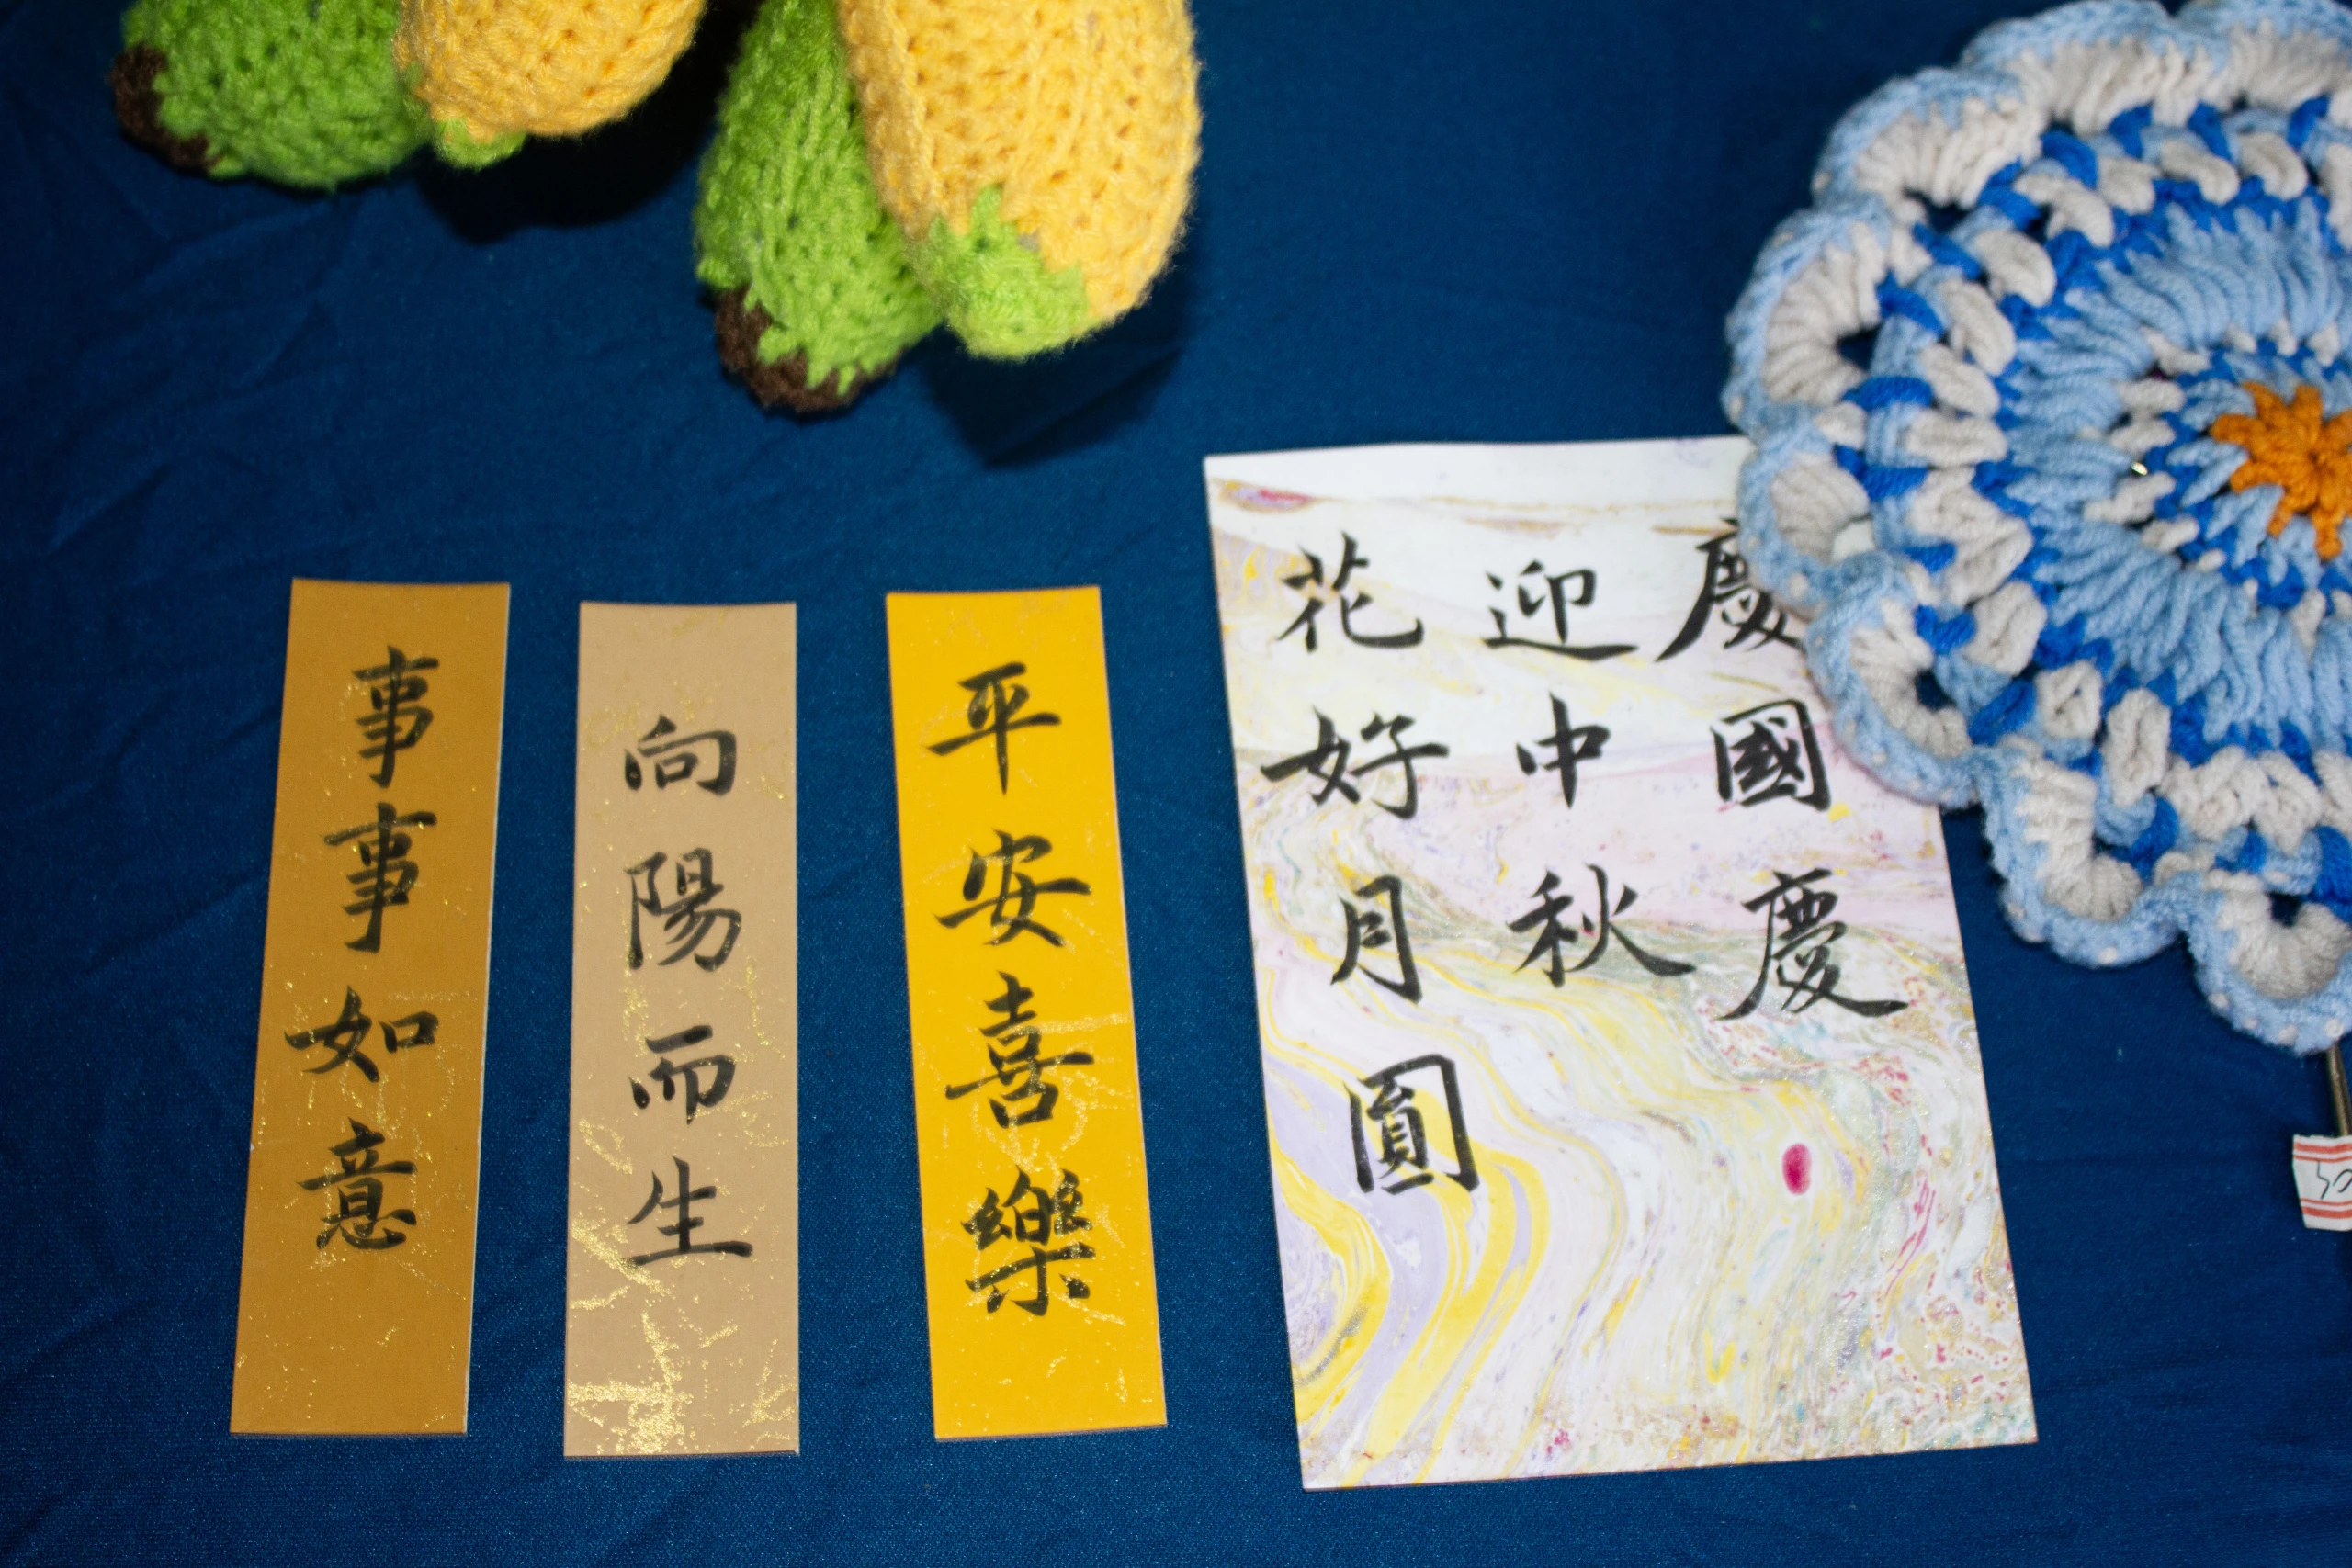 事事如意
向陽而生
平安喜樂
慶國慶
迎中秋
花好月圓